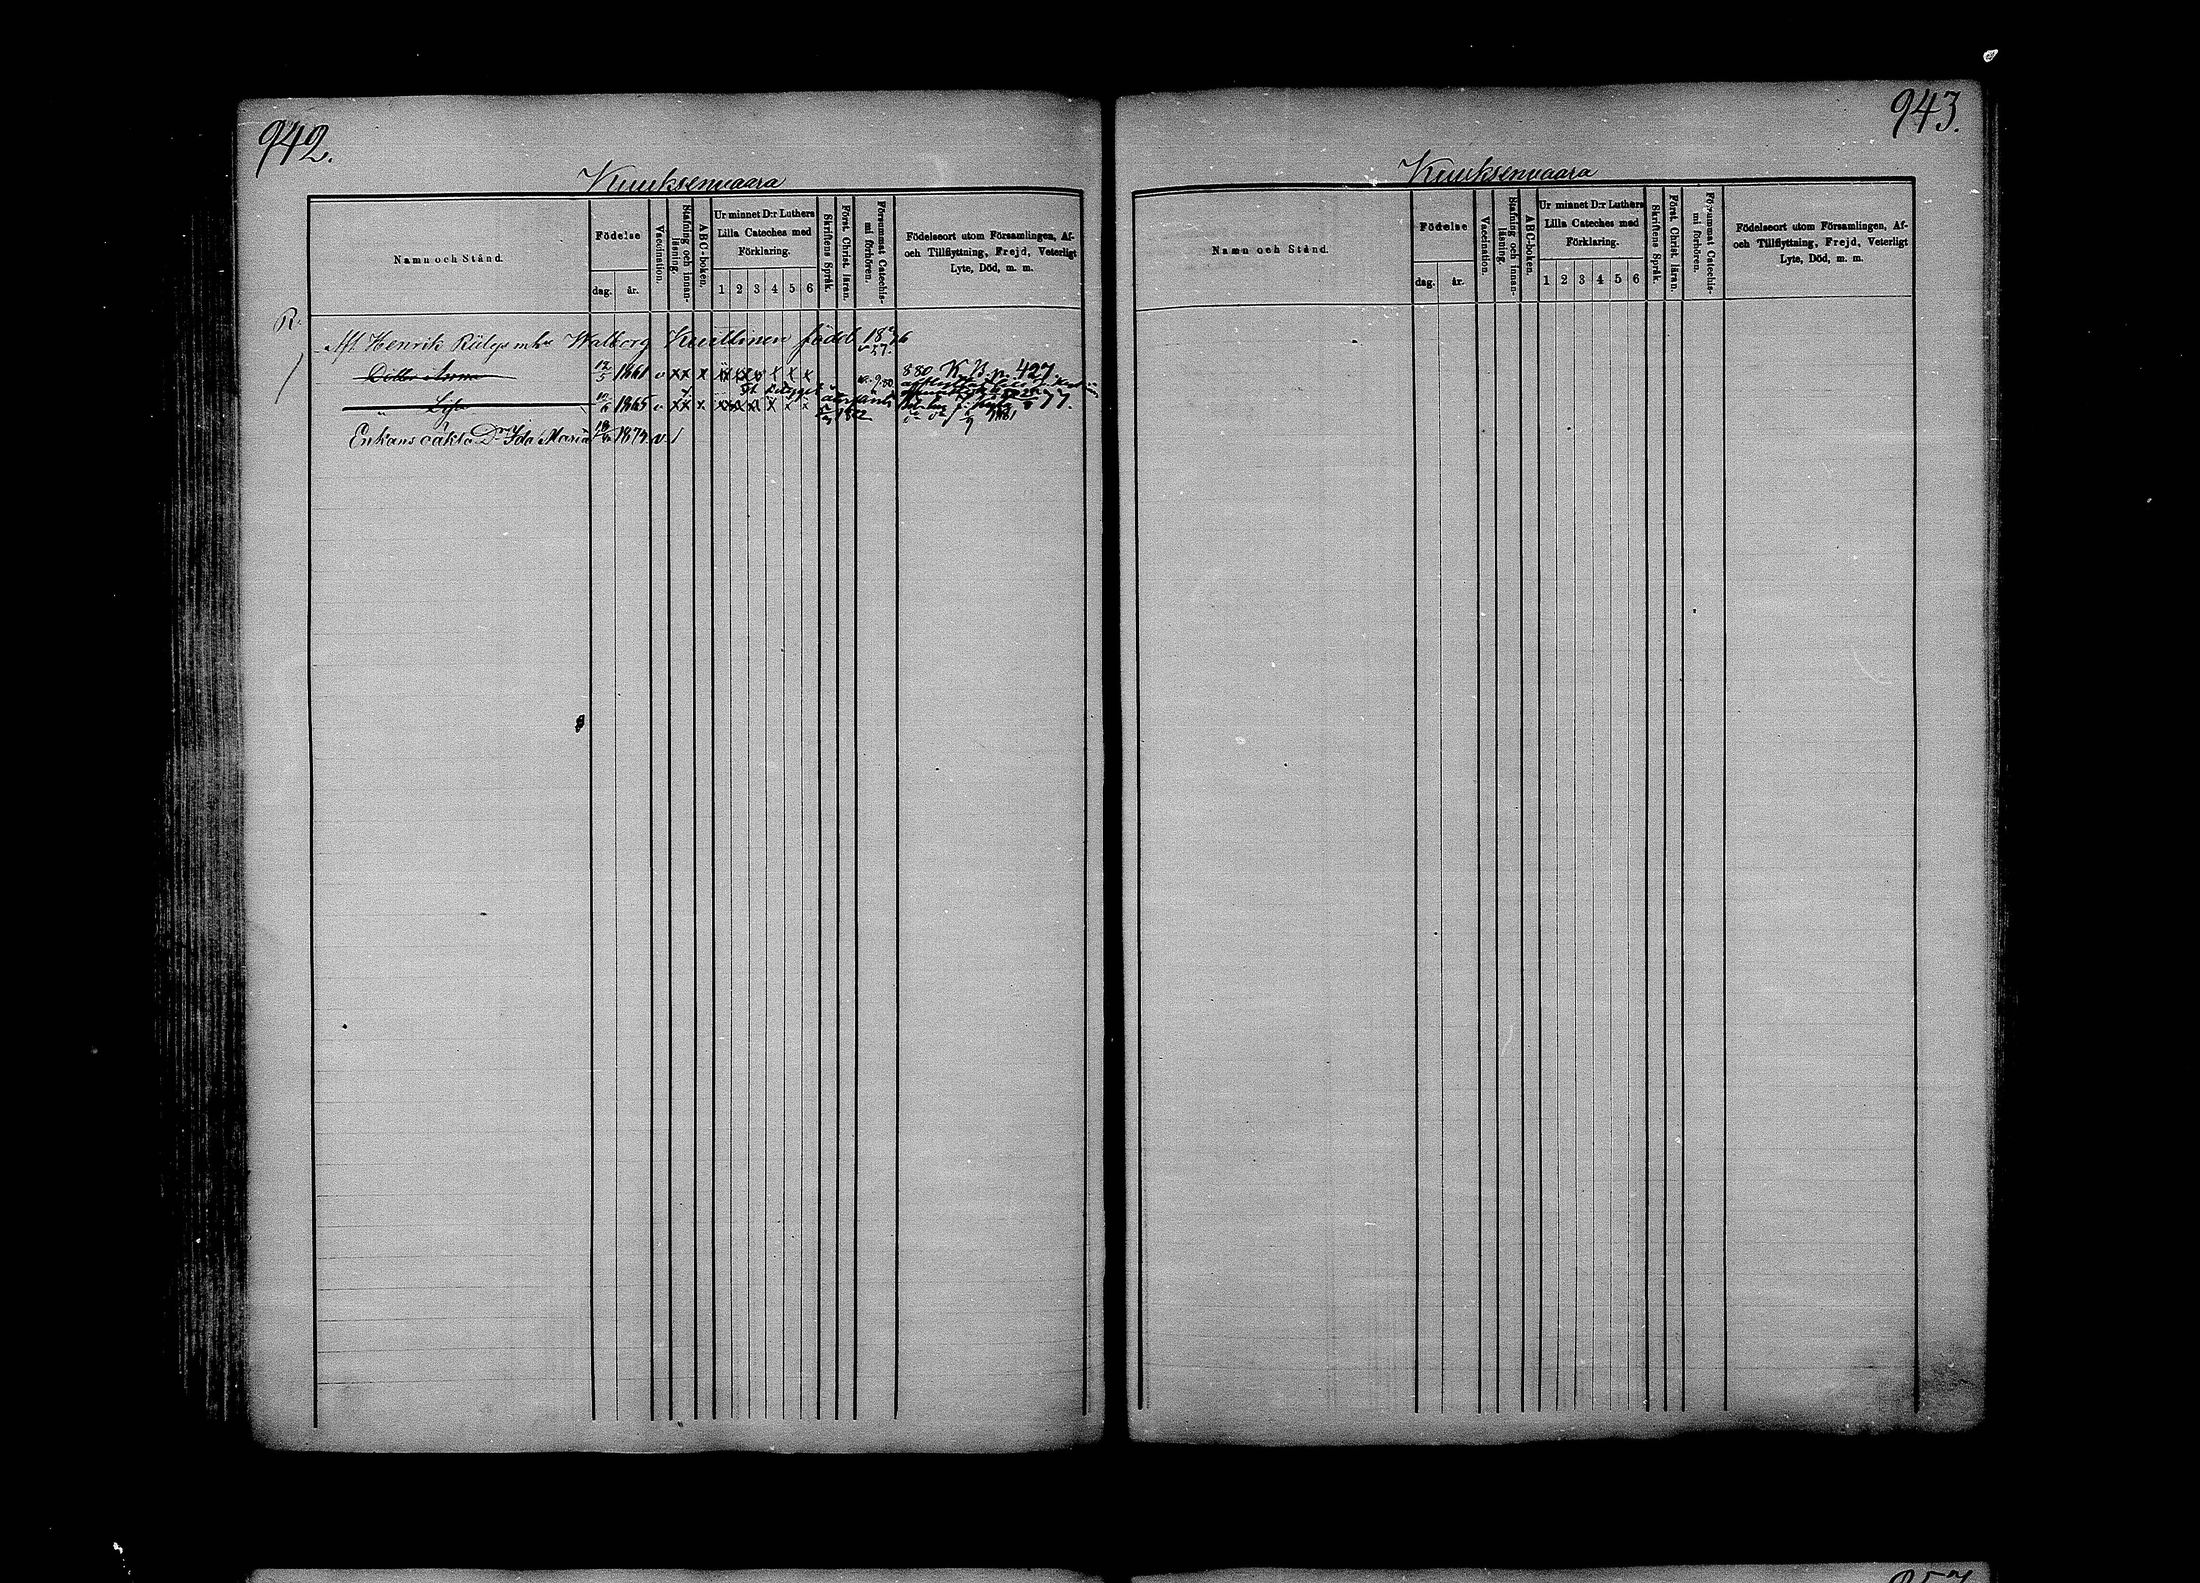 942.
Kuuksenvaara
Namn och Stånd.
Födelse
dag.
år.
Vaccination.
Stafning och innan-
läsning.
ABC-boken.
Ur minnet D:r Luthers
Lilla Cateches med
Förklaring.
1 2 3 4 5 6
Skriftens Språk.
Först. Christ. läran.
Försummat Catechis-
mi förhören.
Födelseort utom Församlingen, Af-
och Tillflyttning, Frejd, Veterligt
Lyte, Död, m. m.
R.
Henrik Walborg född 18
Anna 12/5 1861 v x x x x x x 880 K. B. p. 427.
" Lisa 1865 v x x x x x 77.
1882 1881
Enkans oäkta Dr Ida Maria 1874 v /
943.
Kuuksenvaara
Namn och Stånd.
Födelse
dag.
år.
Vaccination.
Stafning och innan-
läsning.
ABC-boken.
Ur minnet D:r Luthers
Lilla Cateches med
Förklaring.
1 2 3 4 5 6
Skriftens Språk.
Först. Christ. läran.
Försummat Catechis-
mi förhören.
Födelseort utom Församlingen, Af-
och Tillflyttning, Frejd, Veterligt
Lyte, Död, m. m.